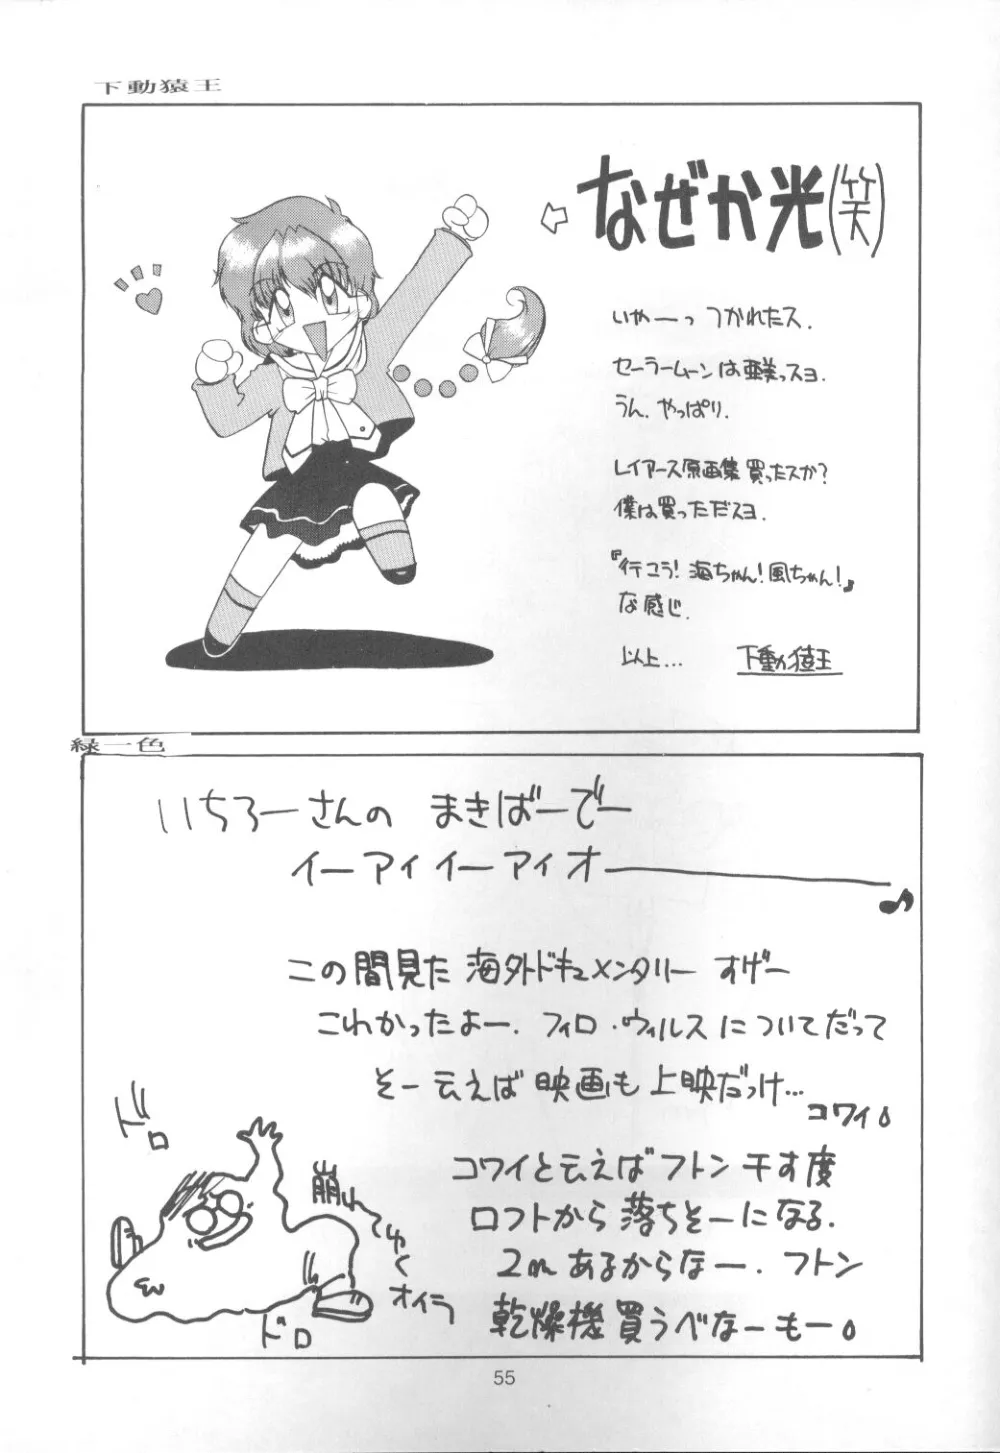 下動猿王
なぜか光(笑)
いやーっ つかれたス.
セーラームーンは亜美っスヨ.
うん. やっぱり.
レイアース原画集買ったスか?
僕は買っただスヨ.
『行こう! 海ちゃん! 風ちゃん!』
な感じ.
以上... 下動猿王
緑一色
いちろーさんの まきばーでー
イーアイイーアイオー♪
この間見た海外ドキュメンタリー すげー
こわかったよー. フィロ・ウィルスについてだって
そー云えば映画も上映だっけ...
コワイ。
コワイと云えばフトン干す度
ロフトから落ちそーになる.
2mあるからなー. フトン
乾燥機買うべなーもー。
ドロ
崩れゆく
オイラ
ドロ
55